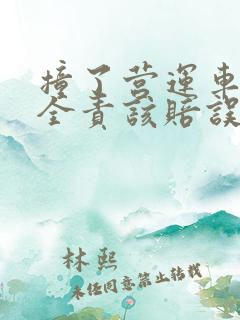 撞了营運車
全責該賠誤
林熙
未经同意禁止转载